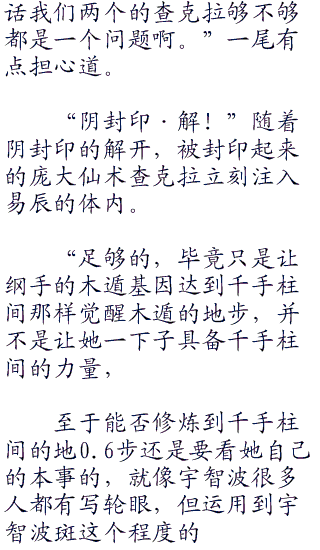 话我们两个的查克拉够不够
都是一个问题啊。”一尾有
点担心道。
“阴封印·解！”随着
阴封印的解开，被封印起来
的庞大仙术查克拉立刻注入
易辰的体内。
“足够的，毕竟只是让
纲手的木遁基因达到千手柱
间那样觉醒木遁的地步，并
不是让她一下子具备千手柱
间的力量，
至于能否修炼到千手柱
间的地0.6步还是要看她自己
的本事的，就像宇智波很多
人都有写轮眼，但运用到宇
智波斑这个程度的